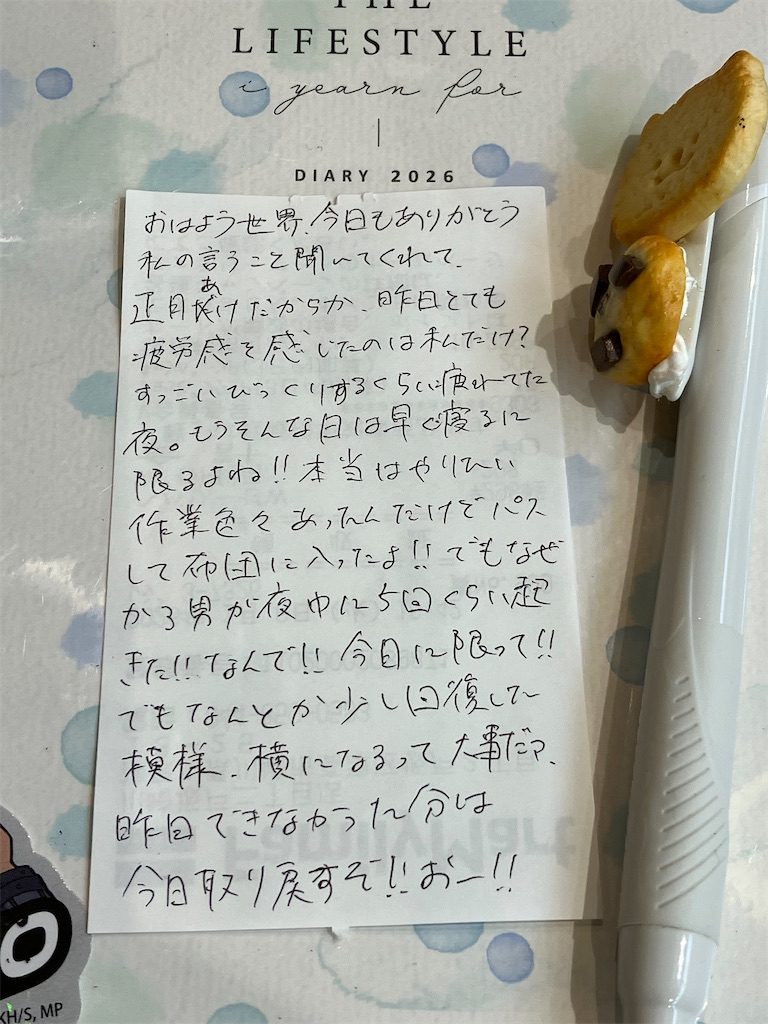 THE
LIFESTYLE
i yearn for
DIARY 2026
おはよう世界、今日もありがとう
私の言うこと聞いてくれて、
正月あけだからか、昨日とても
疲労感を感じたのは私だけ?
すっごいびっくりするくらい疲れてた
夜。もうそんな日は早く寝るに
限るよね!!本当はやりたい
作業色々あったんだけどパス
して布団に入ったよ!!でもなぜ
か3男が夜中に5回くらい起
きた!!なんで!!今日に限って!!
でもなんとか少し回復した
模様、横になるって大事だわ、
昨日できなかった分は
今日取り戻すぞ!!おー!!
FamilyMart
KH/S, MP